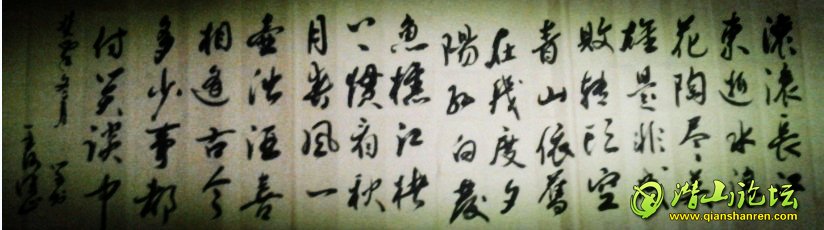 滚滚长江
東逝水浪
花陶尽英
雄是非成
败转头空
青山依舊
在幾度夕
陽红白发
魚樵江楮
上惯看秋
月春风一
壶浊酒喜
相逢古今
多少事都
付笑谈中
潜山论坛
www.qianshanren.com